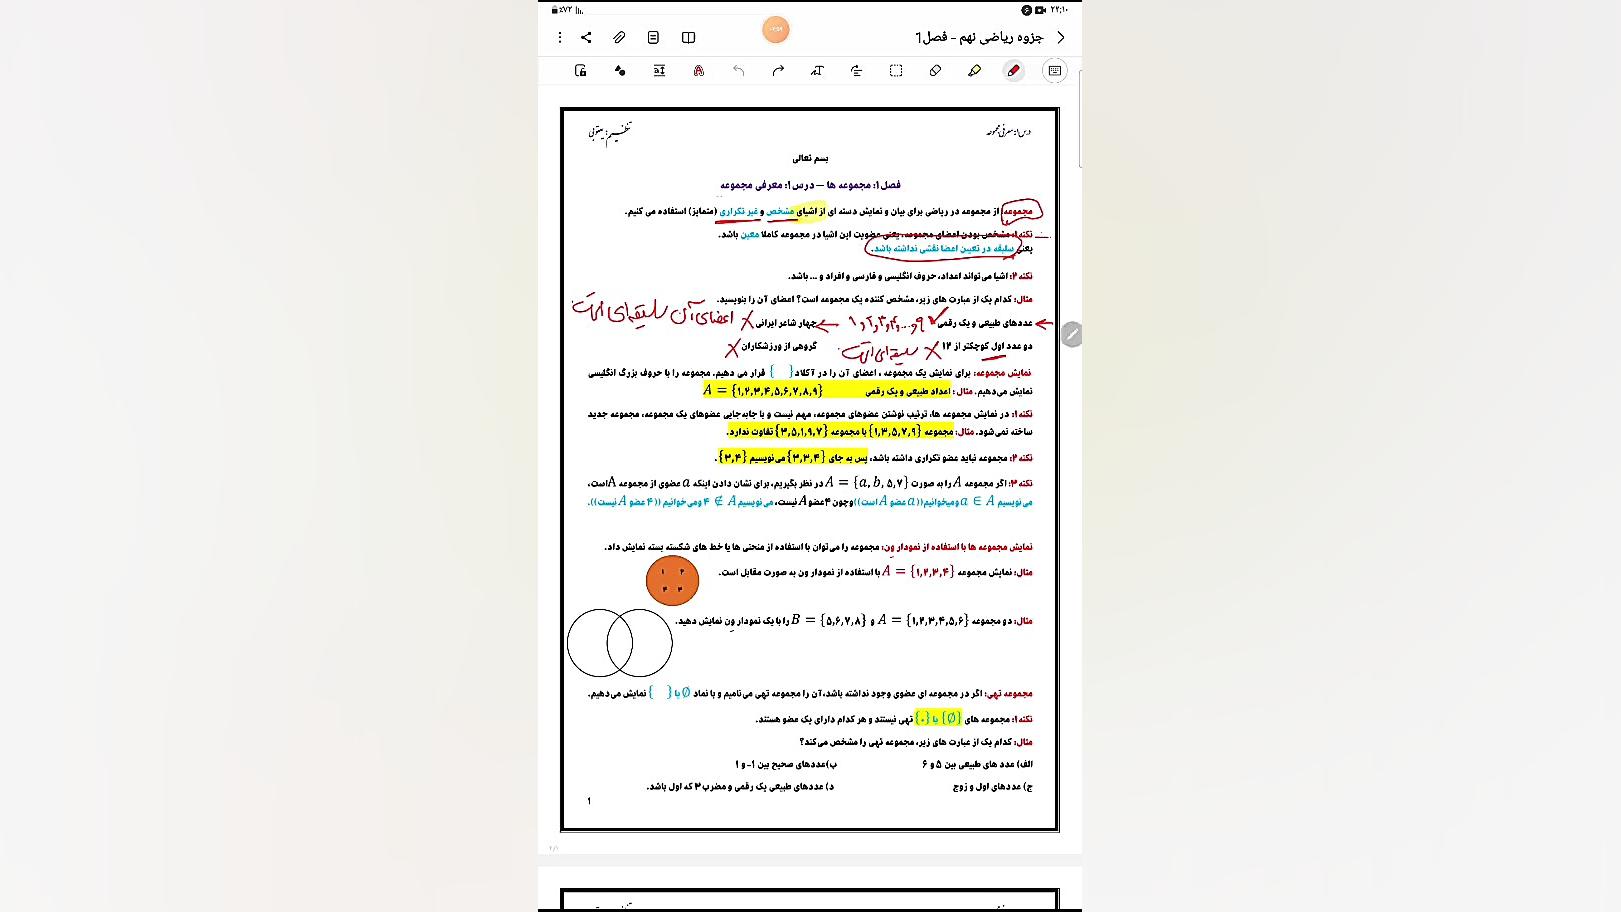 ٪۷۲ ۲۲:۱۰
جزوه ریاضی نهم - فصل1
درس۱: معرفی مجموعه تنظیم: یعقوبی
بسم تعالی
فصل ۱: مجموعه ها – درس ۱: معرفی مجموعه
مجموعه: از مجموعه در ریاضی برای بیان و نمایش دسته ای از اشیای مشخص و غیر تکراری (متمایز) استفاده می کنیم.
نکته ۱: مشخص بودن اعضای مجموعه، یعنی عضویت این اشیا در مجموعه کاملا معین باشد.
یعنی سلیقه در تعیین اعضا نقشی نداشته باشد.
نکته ۲: اشیا می‌تواند اعداد، حروف انگلیسی و فارسی و افراد و ... باشد.
مثال: کدام یک از عبارت های زیر، مشخص کننده یک مجموعه است؟ اعضای آن را بنویسید.
عددهای طبیعی و یک رقمی ✓ ۱,۲,۳,۴,...,۹ چهار شاعر ایرانی X اعضای آن سلیقه‌ای است
دو عدد اول کوچکتر از ۱۲ X سلیقه‌ای است گروهی از ورزشکاران X
نمایش مجموعه: برای نمایش یک مجموعه ، اعضای آن را در آکلاد { } قرار می دهیم. مجموعه را با حروف بزرگ انگلیسی
نمایش می‌دهیم. مثال: اعداد طبیعی و یک رقمی A = {۱,۲,۳,۴,۵,۶,۷,۸,۹}
نکته ۱: در نمایش مجموعه ها، ترتیب نوشتن عضوهای مجموعه، مهم نیست و با جابه‌جایی عضوهای یک مجموعه، مجموعه جدید
ساخته نمی‌شود. مثال: مجموعه {۱,۳,۵,۷,۹} با مجموعه {۳,۵,۱,۹,۷} تفاوت ندارد.
نکته ۲: مجموعه نباید عضو تکراری داشته باشد، پس به جای {۳,۳,۴} می‌نویسیم {۳,۴}.
نکته ۳: اگر مجموعه A را به صورت A = {a, b, ۵,۷} در نظر بگیریم، برای نشان دادن اینکه a عضوی از مجموعه A است،
می‌نویسیم a ∈ A و میخوانیم((a عضو A است)) و چون ۴ عضو A نیست، می‌نویسیم ۴ ∉ A و می‌خوانیم ((۴ عضو A نیست)).
نمایش مجموعه ها با استفاده از نمودار ون: مجموعه را می‌توان با استفاده از منحنی ها یا خط های شکسته بسته نمایش داد.
مثال: نمایش مجموعه A = {۱,۲,۳,۴} با استفاده از نمودار ون به صورت مقابل است.
۱ ۲
۴ ۳
مثال: دو مجموعه A = {۱,۲,۳,۴,۵,۶} و B = {۵,۶,۷,۸} را با یک نمودار ون نمایش دهید.
مجموعه تهی: اگر در مجموعه ای عضوی وجود نداشته باشد، آن را مجموعه تهی می‌نامیم و با نماد ∅ یا { } نمایش می‌دهیم.
نکته ۱: مجموعه های {∅} یا {۰} تهی نیستند و هر کدام دارای یک عضو هستند.
مثال: کدام یک از عبارت های زیر، مجموعه تهی را مشخص می‌کند؟
الف) عدد های طبیعی بین ۵ و ۶ ب)عددهای صحیح بین ۱- و ۱
ج) عددهای اول و زوج د) عددهای طبیعی یک رقمی و مضرب ۳ که اول باشد.
1